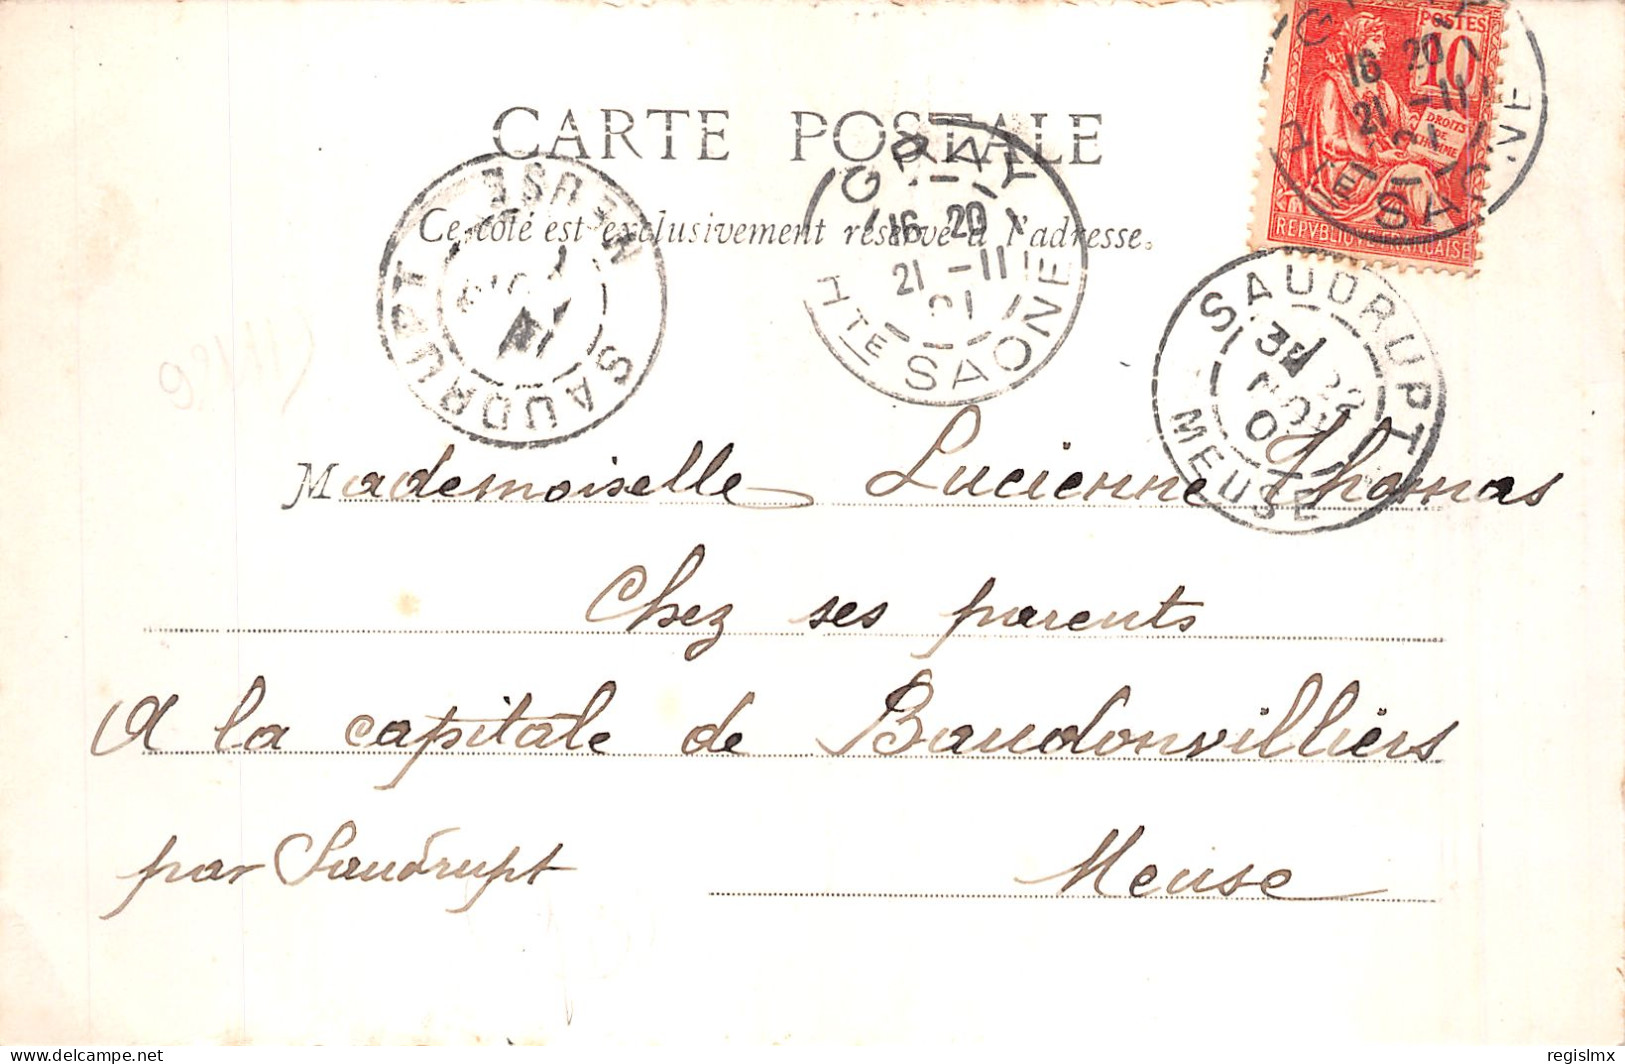 CARTE POSTALE
Ce côté est exclusivement réservé à l'adresse.
POSTES
10
DROITS
DE
L'HOMME
REPVBLIQVE FRANÇAISE
GRAY
16 20
21 -11
01
HTE SAONE
GRAY
16 20
21 -11
01
HTE SAONE
SAUDRUPT
MEUSE
SAUDRUPT
3E 22
NOV
01
MEUSE
Mademoiselle Lucienne Thomas
Chez ses parents
A la capitale de Baudonvilliers
par Saudrupt Meuse
delcampe.net
regislmx